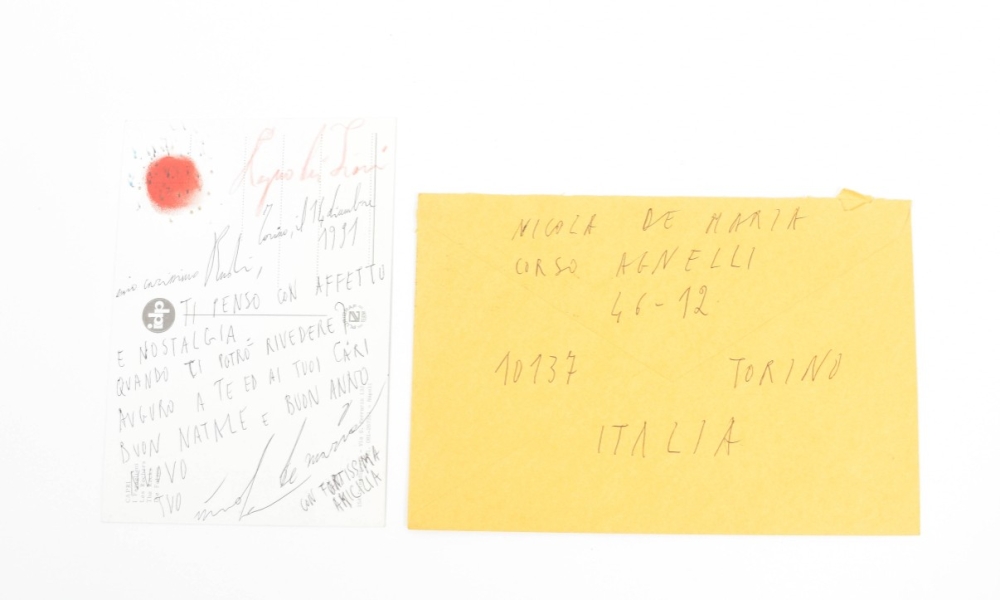 Torino, il 14 dicembre
1991
mio carissimo Rudi,
TI PENSO CON AFFETTO
idp
E NOSTALGIA.
QUANDO TI POTRÒ RIVEDERE?
AUGURO A TE ED AI TUOI CARI
BUON NATALE E BUON ANNO
NUOVO
TUO nicola de maria
CON FORTISSIMA
AMICIZIA
NICOLA DE MARIA
CORSO AGNELLI
46-12
10137 TORINO
ITALIA